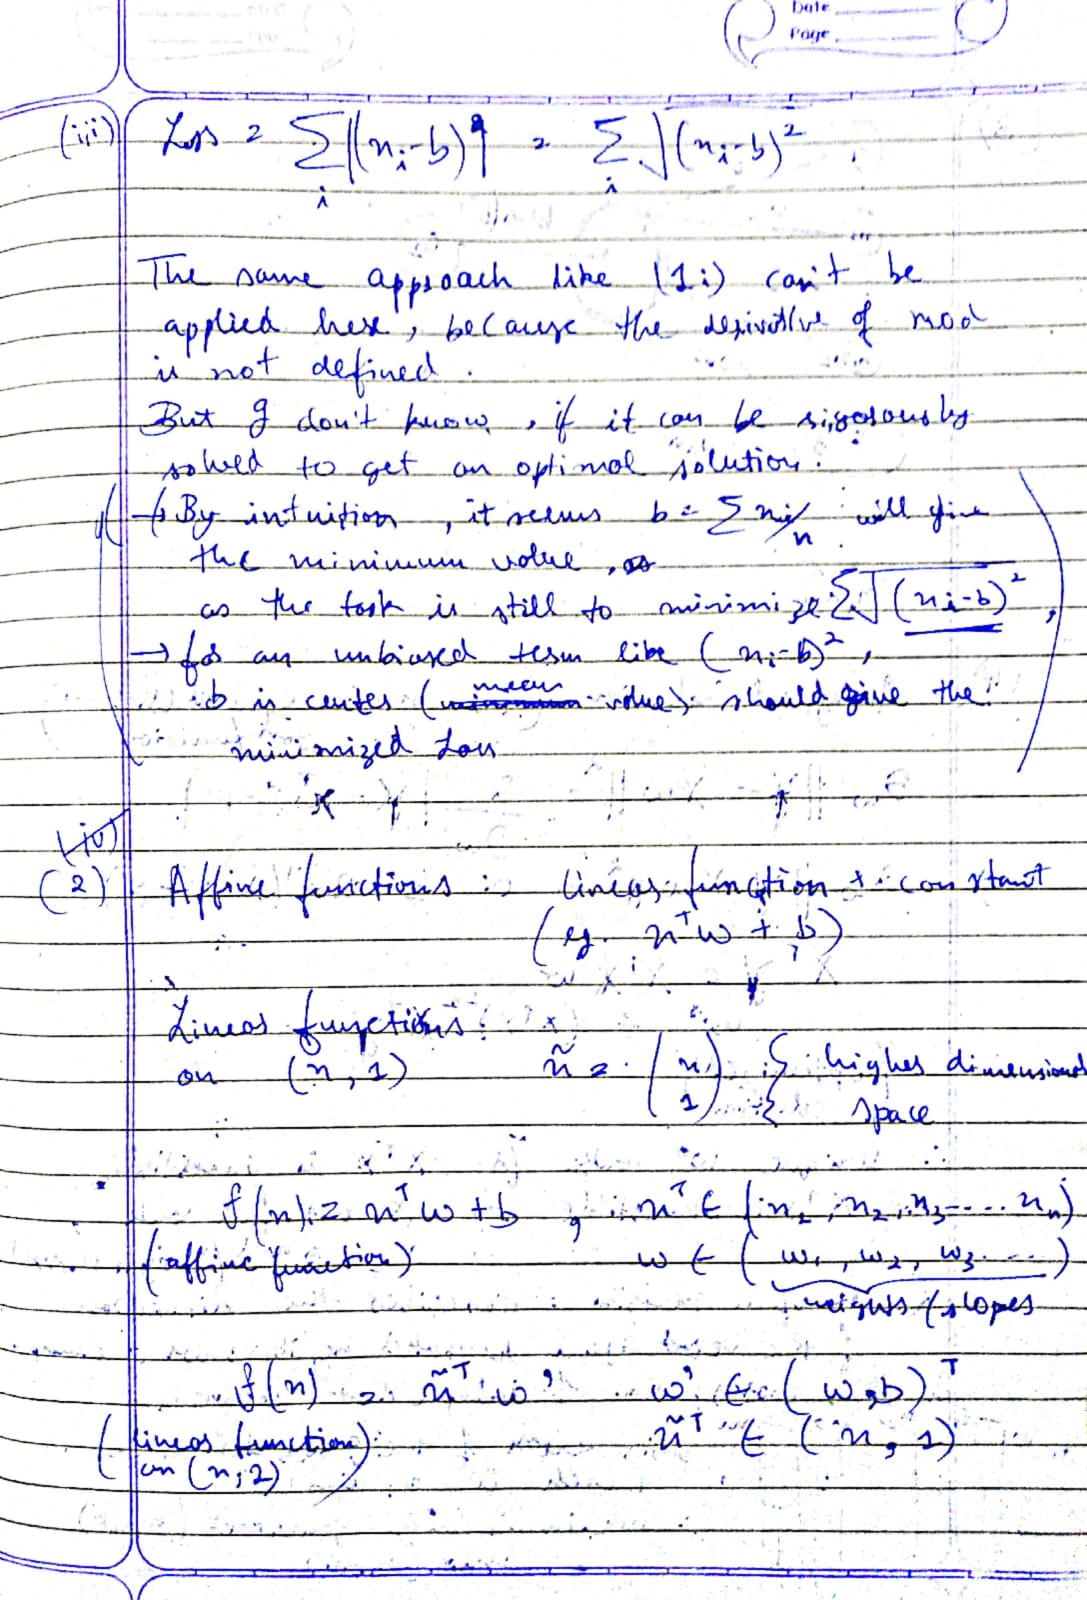 Date
Page
(iii) Loss = ∑_i |(x_i-b)| = ∑_i √(x_i-b)²
The same approach like (1i) can't be
applied here, because the derivative of mod
is not defined.
But I don't know, if it can be rigorously
solved to get an optimal solution.
→ By intuition, it seems b = ∑x_i/n will give
the minimum value,
as the task is still to minimize ∑√(x_i-b)²,
→ for an unbiased term like (x_i-b)²,
b is center (mean value) should give the
minimized Loss
(iv)
(2) Affine functions : linear function + constant
(eg. x^T w + b)
Linear functions :
on (x, 1) x̃ = (x 1) { higher dimensional
space
f(x) = x^T w + b , x^T ∈ (x_1, x_2, x_3 .... x_n)
(affine function) w ∈ (w_1, w_2, w_3 ....)
weights/slopes
f(x) = x̃^T w' w' ∈ (w, b)^T
(linear function) x̃^T ∈ (x, 1)
on (x, 1)